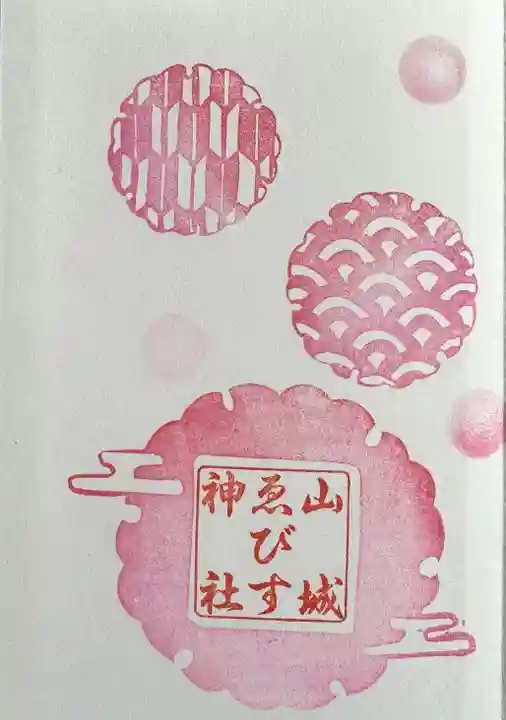 山城
ゑびす
神社